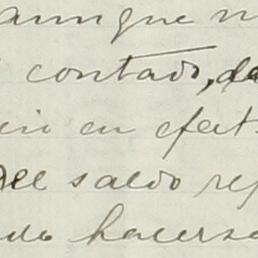 aunque
contado, de
en efect
del saldo ref
hacerse